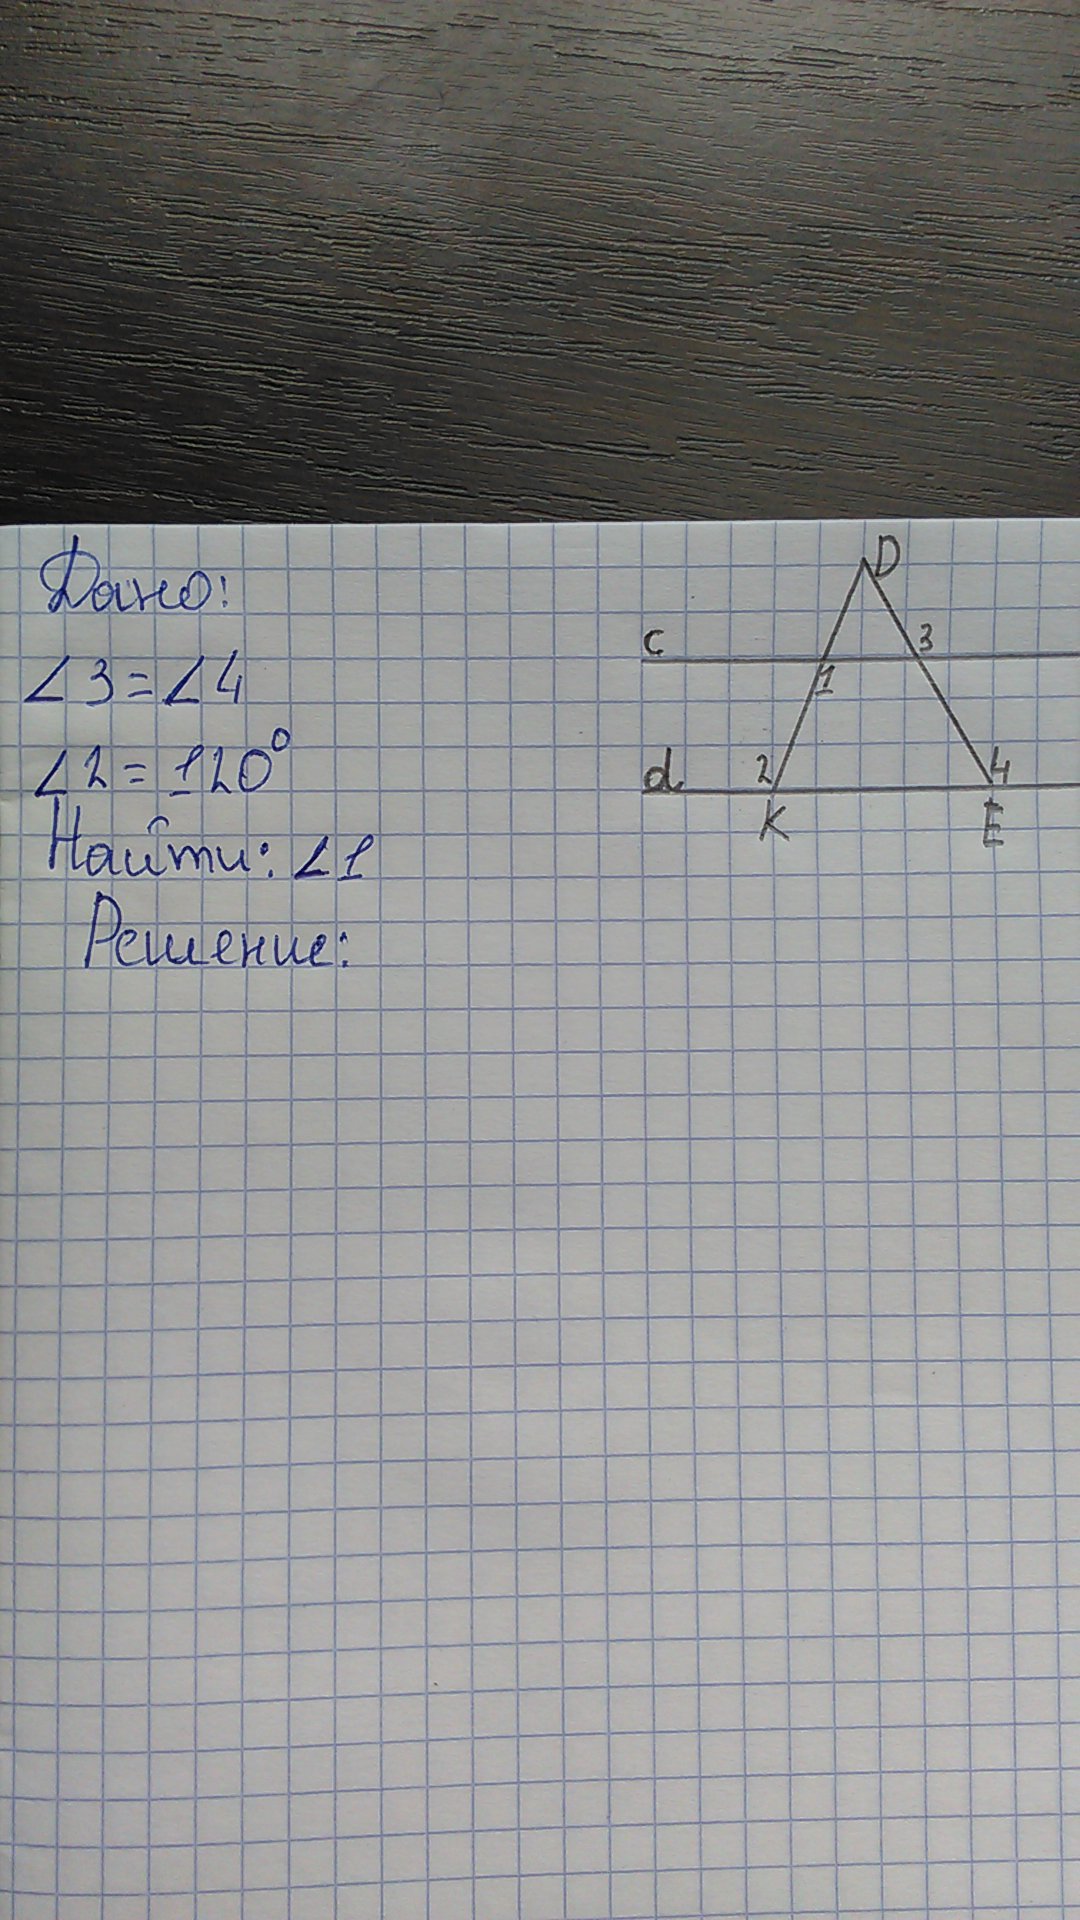 Дано:
∠3=∠4
∠2=120°
Найти: ∠1
Решение:
D
c
3
1
d
2
4
K
E